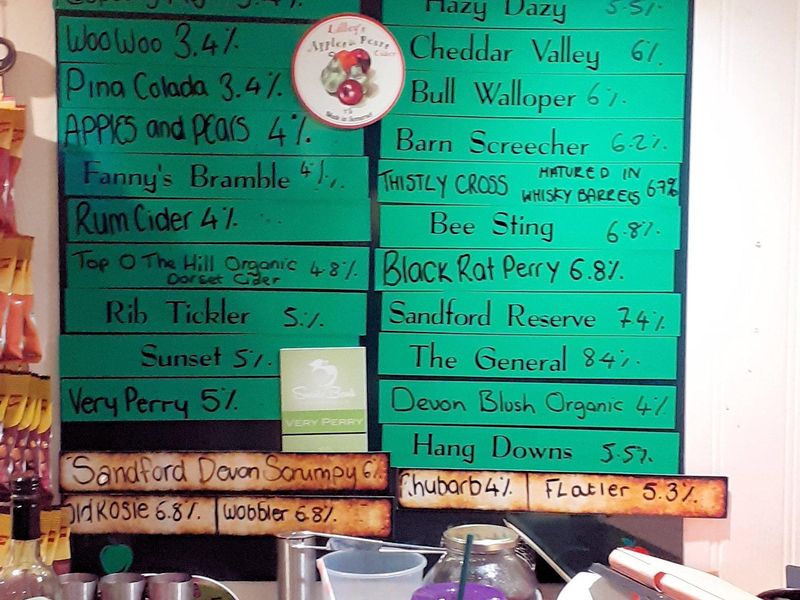 3.4%
WooWoo 3.4%
Pina Colada 3.4%
APPLES and PEARS 4%
Fanny's Bramble 4%
Rum Cider 4%
Top O The Hill Organic 4.8%
Dorset Cider
Rib Tickler 5%
Sunset 5%
Very Perry 5%
Lilley's
Apples & Pears
Cider
Made in Somerset
VERY PERRY
Hazy Dazy 5.5%
Cheddar Valley 6%
Bull Walloper 6%
Barn Screecher 6.2%
THISTLY CROSS MATURED IN
WHISKY BARRELS 6.7%
Bee Sting 6.8%
Black Rat Perry 6.8%
Sandford Reserve 7.4%
The General 8.4%
Devon Blush Organic 4%
Hang Downs 5.5%
Sandford Devon Scrumpy 6%
Old Rosie 6.8% Wobbler 6.8%
Rhubarb 4% FLatier 5.3%